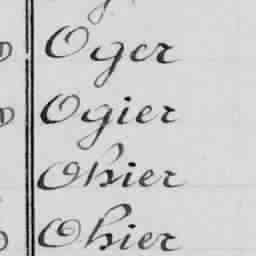 Oger
Ogier
Ohier
Ohier